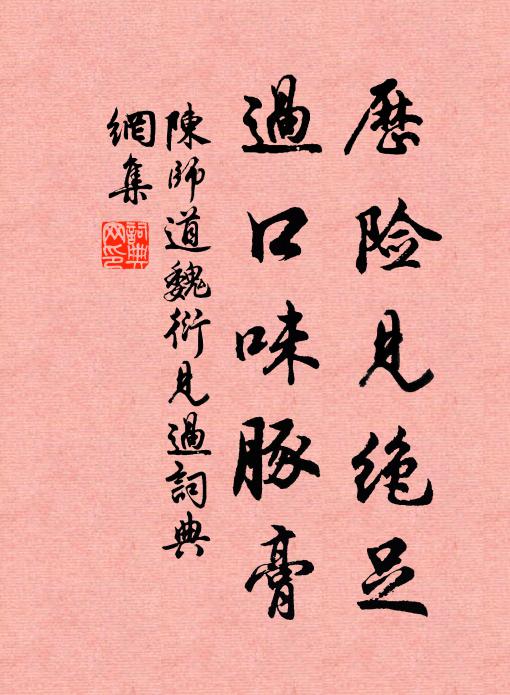 歷险見绝足
過口味豚膏
陳師道魏衍見過詞典
網集
詞典
网印